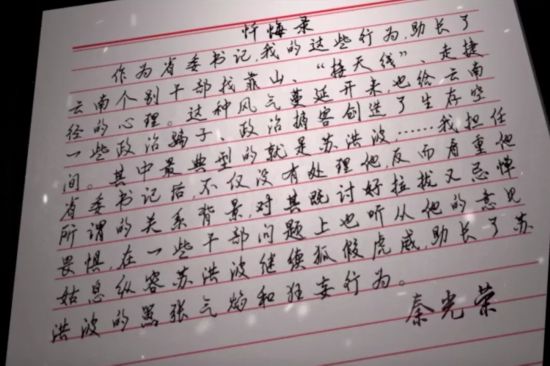 忏悔录
作为省委书记，我的这些行为，助长了
云南个别干部找靠山、“接天线”、走捷
径的心理。这种风气蔓延开来，也给云南
一些政治骗子 政治掮客创造了生存空
间。其中最典型的就是苏洪波……我担任
省委书记后，不仅没有处理他反而看重他
所谓的关系背景，对其既讨好拉拢又忌惮
畏惧，在一些干部问题上也听从他的意见
姑息纵容苏洪波继续狐假虎威，助长了苏
洪波的嚣张气焰和狂妄行为。
秦光荣